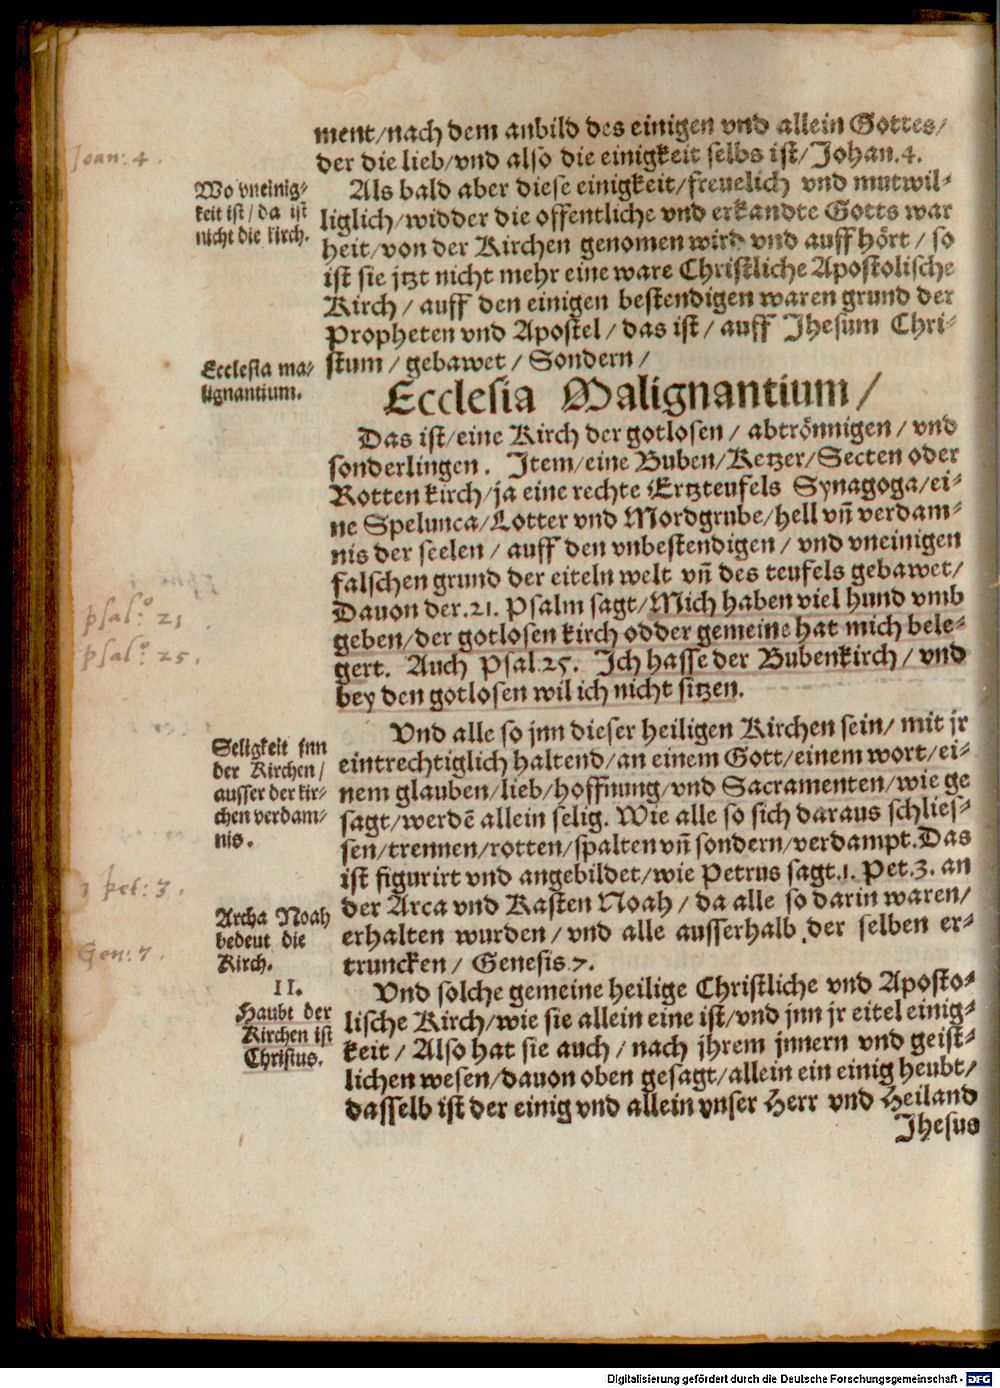 ment/nach dem anbild des einigen vnd allein Gottes/
der die lieb/vnd also die einigkeit selbs ist/Johan.4.
Joan: 4.
Wo vneinig-
keit ist/da ist
nicht die kirch.
Als bald aber diese einigkeit/freuelich vnd mutwil-
liglich/widder die offentliche vnd erkandte Gotts war
heit/von der Kirchen genomen wird vnd auffhört/so
ist sie jtzt nicht mehr eine ware Christliche Apostolische
Kirch/auff den einigen bestendigen waren grund der
Propheten vnd Apostel/das ist/auff Jhesum Chri-
stum/gebawet/Sondern/
Ecclesia ma-
lignantium.
Ecclesia Malignantium/
Das ist/eine Kirch der gotlosen/abtrönnigen/vnd
sonderlingen. Item/eine Buben/Ketzer/Secten oder
Rotten kirch/ja eine rechte Ertzteufels Synagoga/ei-
ne Spelunca/Lotter vnd Mordgrube/hell vn̄ verdam-
nis der seelen/auff den vnbestendigen/vnd vneinigen
falschen grund der eiteln welt vn̄ des teufels gebawet/
Dauon der.21. Psalm sagt/Mich haben viel hund vmb
geben/der gotlosen kirch odder gemeine hat mich bele-
gert. Auch Psal.25. Ich hasse der Bubenkirch/vnd
bey den gotlosen wil ich nicht sitzen.
psal:º 21
psal:º 25.
Seligkeit jnn
der Kirchen/
ausser der kir-
chen verdam-
nis.
Vnd alle so jnn dieser heiligen Kirchen sein/mit jr
eintrechtiglich haltend/an einem Gott/einem wort/ei-
nem glauben/lieb/hoffnung/vnd Sacramenten/wie ge
sagt/werdē allein selig. Wie alle so sich daraus schlies-
sen/trennen/rotten/spalten vn̄ sondern/verdampt.Das
ist figurirt vnd angebildet/wie Petrus sagt.1. Pet.3. an
der Arca vnd Kasten Noah/da alle so darin waren/
erhalten wurden/vnd alle ausserhalb der selben er-
truncken/Genesis.7.
1 pet: 3.
Archa Noah
bedeut die
Kirch.
Gen: 7.
II.
Haubt der
Kirchen ist
Christus.
Vnd solche gemeine heilige Christliche vnd Aposto-
lische Kirch/wie sie allein eine ist/vnd jnn jr eitel einig-
keit/Also hat sie auch/nach jhrem jnnern vnd geist-
lichen wesen/dauon oben gesagt/allein ein einig heubt/
dasselb ist der einig vnd allein vnser Herr vnd Heiland
Jhesus
Digitalisierung gefördert durch die Deutsche Forschungsgemeinschaft - DFG